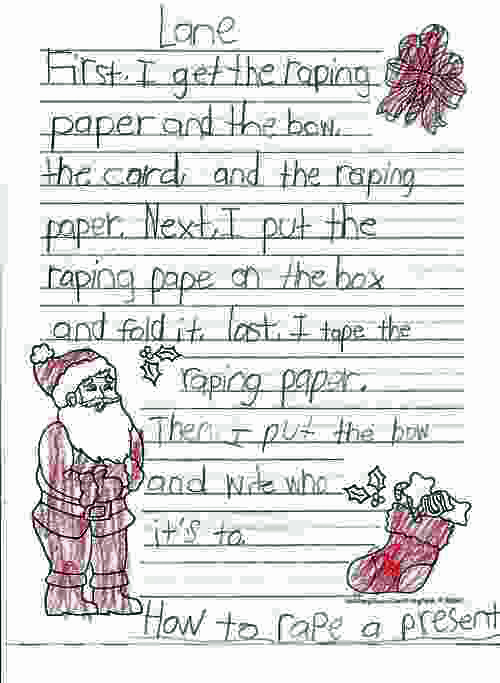 Lane
First, I get the raping
paper and the bow,
the card, and the raping
paper. Next, I put the
raping pape on the box
and fold it. last, I tape the
raping paper.
Then I put the bow
and write who
it's to.
How to rape a present